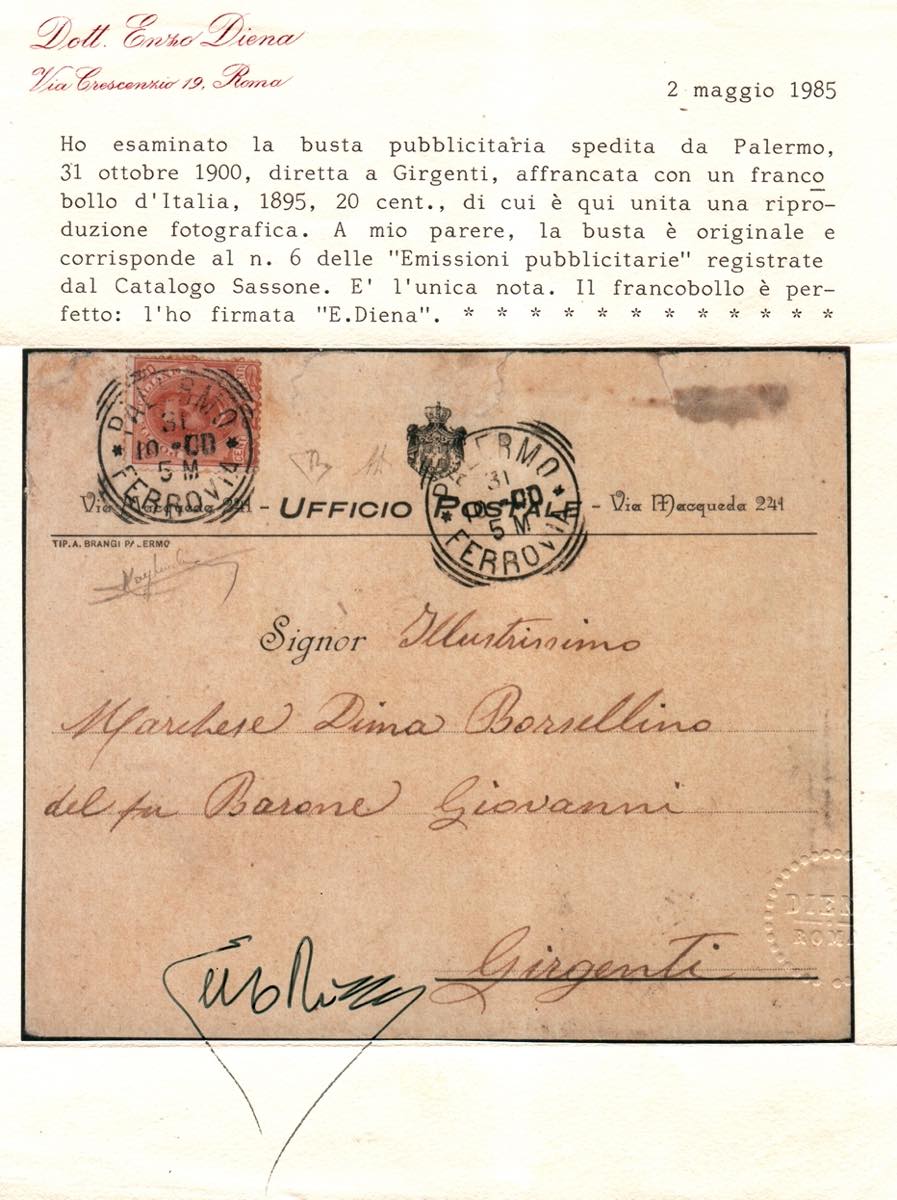 Dott. Enzo Diena
Via Crescenzio 19, Roma
2 maggio 1985
Ho esaminato la busta pubblicitaria spedita da Palermo,
31 ottobre 1900, diretta a Girgenti, affrancata con un franco
bollo d'Italia, 1895, 20 cent., di cui è qui unita una ripro-
duzione fotografica. A mio parere, la busta è originale e
corrisponde al n. 6 delle "Emissioni pubblicitarie" registrate
dal Catalogo Sassone. E' l'unica nota. Il francobollo è per-
fetto: l'ho firmata "E.Diena". * * * * * * * * * * * *
PALERMO
31
10-00
5 M
* FERROVIA *
PALERMO
31
10-00
5 M
* FERROVIA *
Via Macqueda 241 - UFFICIO POSTALE - Via Macqueda 241
TIP. A. BRANGI PALERMO
Signor Illustrissimo
Marchese Dima Borsellino
del fu Barone Giovanni
Girgenti
DIEN
ROMA